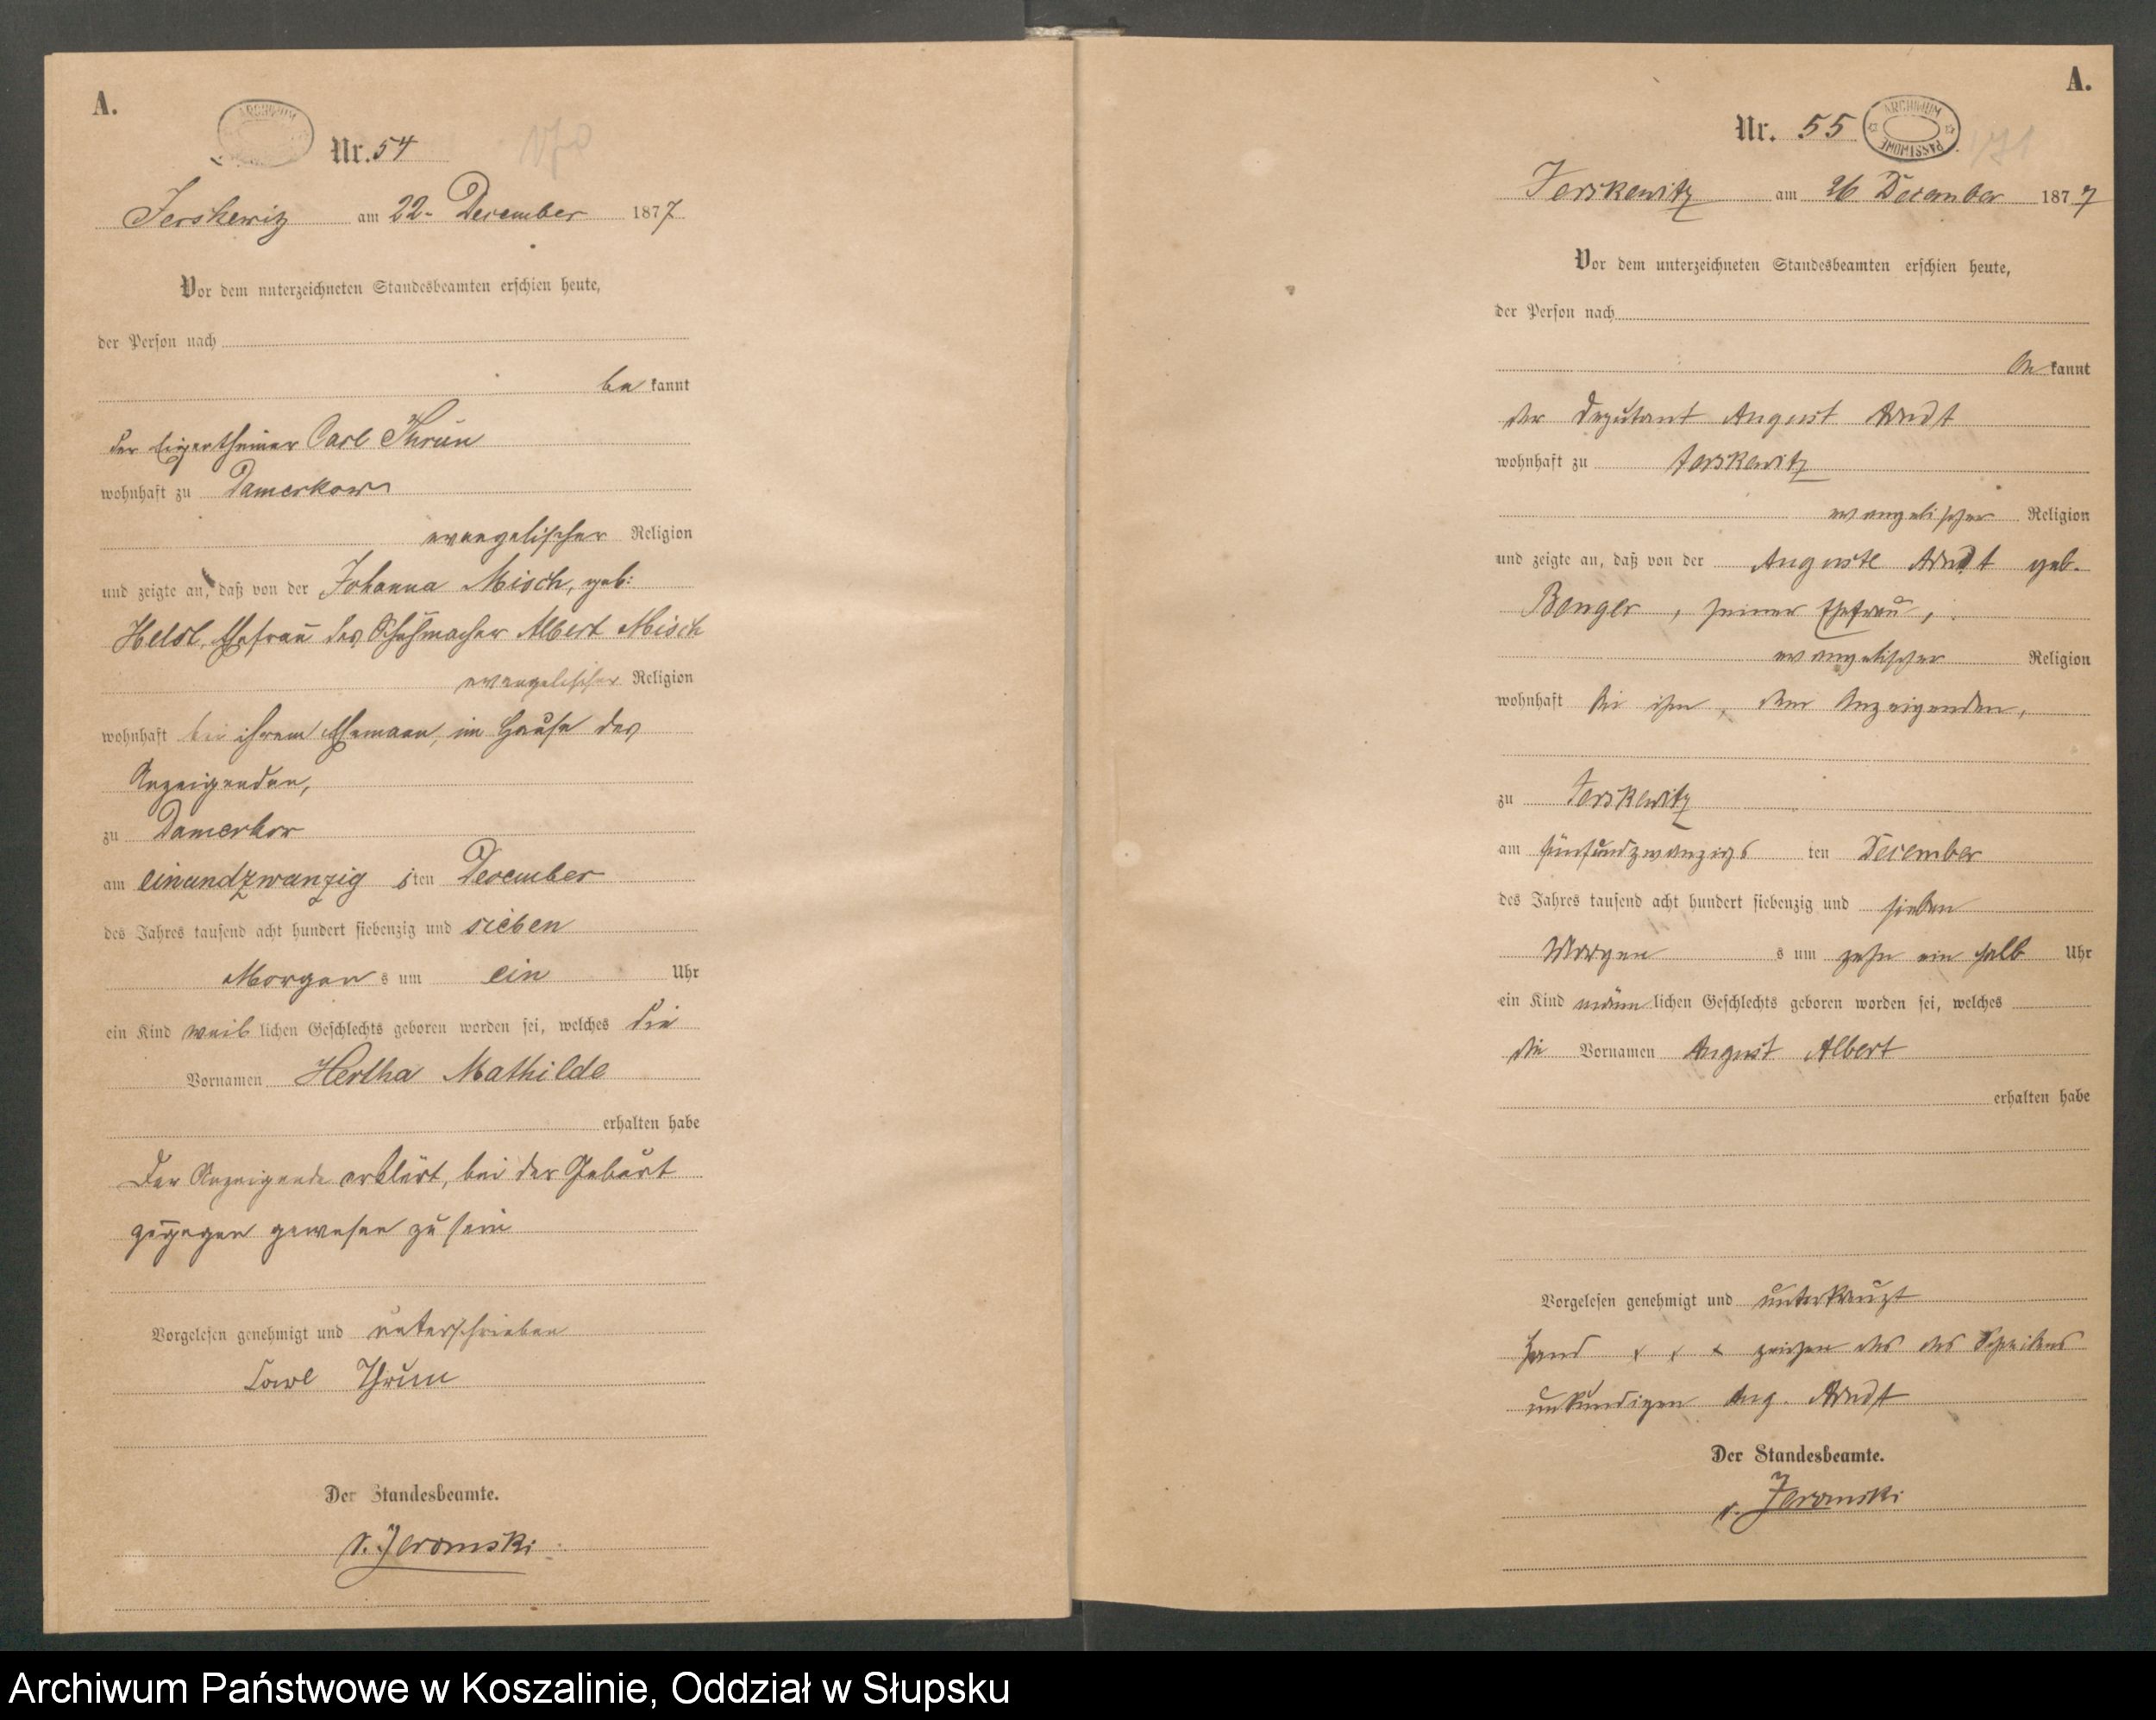 A.
ARCHIWUM
Nr. 54
170
Jerskewitz am 22. December 1877
Vor dem unterzeichneten Standesbeamten erschien heute,
der Person nach
be kannt
der Eigenthümer Carl Thrun
wohnhaft zu Damerkow
evangelischer Religion
und zeigte an, daß von der Johanna Misch, geb:
Ehefrau des Schuhmacher Albert Misch
evangelischer Religion
wohnhaft bei ihrem Ehemann, im Hause des
Anzeigenden,
zu Damerkow
am einundzwanzig sten December
des Jahres tausend acht hundert siebenzig und sieben
Morgen s um ein Uhr
ein Kind weib lichen Geschlechts geboren worden sei, welches die
Vornamen Hertha Mathilde
erhalten habe
Der Anzeigende erklärt, bei der Geburt
zugegen gewesen zu sein
Vorgelesen genehmigt und unterschrieben
Carl Thrun
Der Standesbeamte.
v. Jeromski
A.
Nr. 55
ARCHIWUM PAŃSTWOWE
171
Jerskewitz am 26 December 1877
Vor dem unterzeichneten Standesbeamten erschien heute,
der Person nach
be kannt
der Deputant August Arndt
wohnhaft zu Jerskewitz
evangelischer Religion
und zeigte an, daß von der Auguste Arndt geb.
Benger, seiner Ehefrau,
evangelischer Religion
wohnhaft bei ihm, dem Anzeigenden,
zu Jerskewitz
am fünfundzwanzigs ten December
des Jahres tausend acht hundert siebenzig und sieben
Morgen s um zehn ein halb Uhr
ein Kind männ lichen Geschlechts geboren worden sei, welches
die Vornamen August Albert
erhalten habe
Vorgelesen genehmigt und unterkreuzt
Hand x x x zeichen des des Schreibens
unkundigen Aug. Arndt
Der Standesbeamte.
v. Jeromski
Archiwum Państwowe w Koszalinie, Oddział w Słupsku